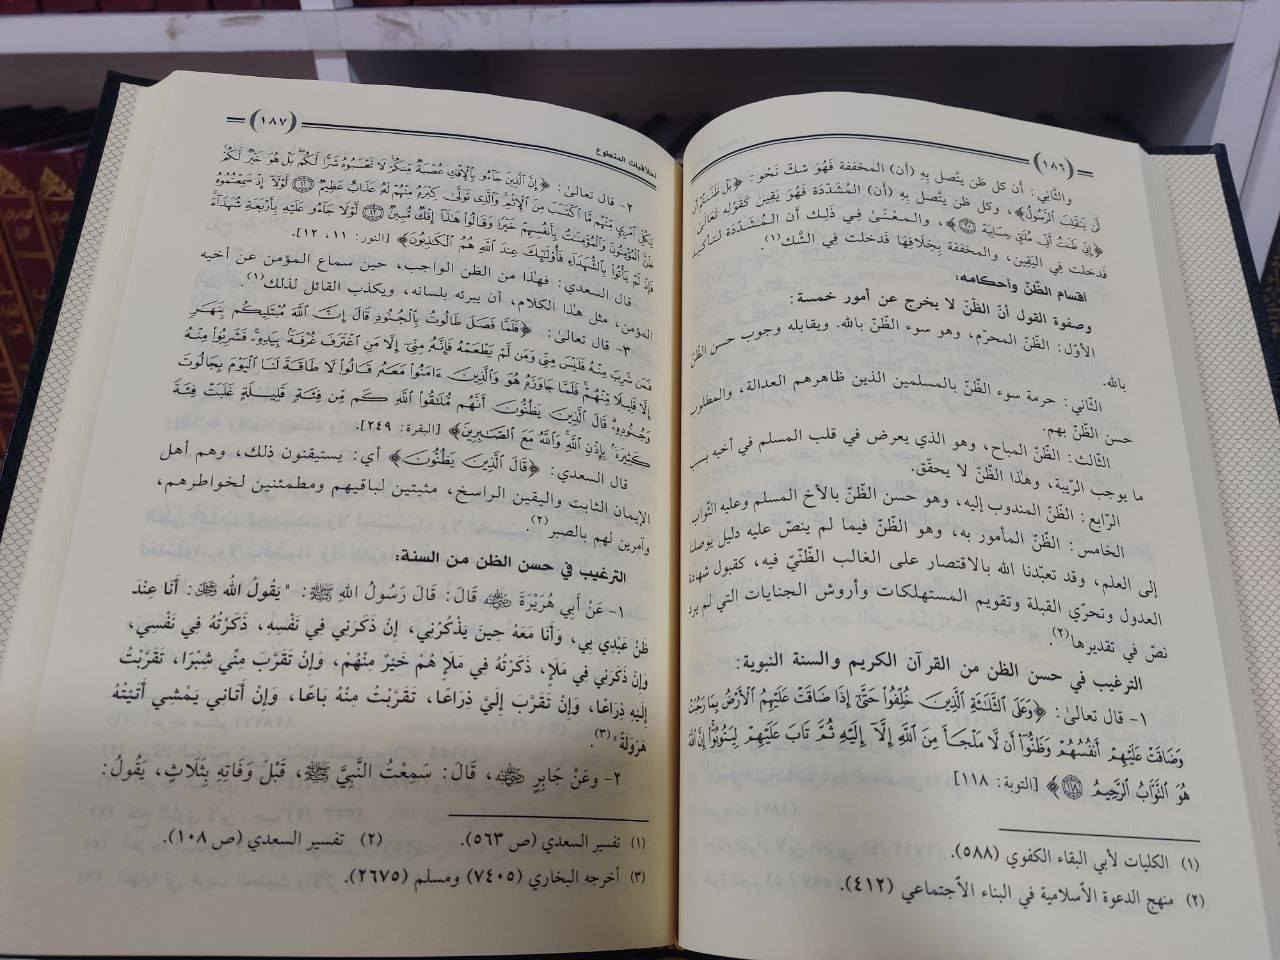 (١٨٦)
والثاني: أن كل ظن يتّصل بِهِ (أن) المخففة فَهُوَ شكّ نَحْو: ﴿بَلْ ظَنَنتُمْ أَن
لَّن يَنقَلِبَ ٱلرَّسُولُ﴾، وكل ظن يتَّصل بِهِ (أن) المُشَدّدَة فَهُوَ يَقِين كَقَوْلِه تَعَالَى
﴿إِنِّي ظَنَنتُ أَنِّي مُلَـٰقٍ حِسَابِيَهْ ۝٢٠﴾، والمعْنَى فِي ذَلِك أَن المُشَدّدَة لتأكيد
فَدخلت فِي اليَقِين، والمخففة بِخِلَافِهَا فَدخلت فِي الشَّك(١).
أقسام الظّنّ وأحكامه:
وصفوة القول أنّ الظّنّ لا يخرج عن أمور خمسة:
الأوّل: الظّنّ المحرّم، وهو سوء الظّنّ بالله. ويقابله وجوب حسن الظّنّ
بالله.
الثّاني: حرمة سوء الظّنّ بالمسلمين الذين ظاهرهم العدالة، والمطلوب
حسن الظّنّ بهم.
الثّالث: الظّنّ المباح، وهو الذي يعرض في قلب المسلم في أخيه بسبب
ما يوجب الرّيبة، وهذا الظّنّ لا يحقّق.
الرّابع: الظّنّ المندوب إليه، وهو حسن الظّنّ بالأخ المسلم وعليه الثّواب
الخامس: الظّنّ المأمور به، وهو الظّنّ فيما لم ينصّ عليه دليل يوصلنا
إلى العلم، وقد تعبّدنا الله بالاقتصار على الغالب الظّنّيّ فيه، كقبول شهادة
العدول وتحرّي القبلة وتقويم المستهلكات وأروش الجنايات التي لم يرد
نصّ في تقديرها(٢)
الترغيب في حسن الظن من القرآن الكريم والسنة النبوية:
١- قال تعالى: ﴿وَعَلَى ٱلثَّلَـٰثَةِ ٱلَّذِينَ خُلِّفُوا۟ حَتَّىٰٓ إِذَا ضَاقَتْ عَلَيْهِمُ ٱلْأَرْضُ بِمَا رَحُبَتْ
وَضَاقَتْ عَلَيْهِمْ أَنفُسُهُمْ وَظَنُّوٓا۟ أَن لَّا مَلْجَأَ مِنَ ٱللَّهِ إِلَّآ إِلَيْهِ ثُمَّ تَابَ عَلَيْهِمْ لِيَتُوبُوٓا۟ إِنَّ ٱللَّهَ
هُوَ ٱلتَّوَّابُ ٱلرَّحِيمُ ۝١١٨﴾ [التوبة: ١١٨]
(١) الكليات لأبي البقاء الكفوي (٥٨٨).
(٢) منهج الدعوة الأسلامية في البناء الأجتماعي (٤١٢).
أخلاقيات المتطوع (١٨٧)
٢- قال تعالى: ﴿إِنَّ ٱلَّذِينَ جَآءُو بِٱلْإِفْكِ عُصْبَةٌ مِّنكُمْ لَا تَحْسَبُوهُ شَرًّا لَّكُم بَلْ هُوَ خَيْرٌ لَّكُمْ
لِكُلِّ ٱمْرِئٍ مِّنْهُم مَّا ٱكْتَسَبَ مِنَ ٱلْإِثْمِ وَٱلَّذِى تَوَلَّىٰ كِبْرَهُۥ مِنْهُمْ لَهُۥ عَذَابٌ عَظِيمٌ ۝١١ لَّوْلَآ إِذْ سَمِعْتُمُوهُ
ظَنَّ ٱلْمُؤْمِنُونَ وَٱلْمُؤْمِنَـٰتُ بِأَنفُسِهِمْ خَيْرًا وَقَالُوا۟ هَـٰذَآ إِفْكٌ مُّبِينٌ ۝١٢ لَّوْلَا جَآءُو عَلَيْهِ بِأَرْبَعَةِ شُهَدَآءَ
فَإِذْ لَمْ يَأْتُوا۟ بِٱلشُّهَدَآءِ فَأُو۟لَـٰٓئِكَ عِندَ ٱللَّهِ هُمُ ٱلْكَـٰذِبُونَ﴾ [النور: ١١، ١٢].
قال السعدي: فهذا من الظن الواجب، حين سماع المؤمن عن أخيه
المؤمن، مثل هذا الكلام، أن يبرئه بلسانه، ويكذب القائل لذلك(١).
٣- قال تعالى: ﴿فَلَمَّا فَصَلَ طَالُوتُ بِٱلْجُنُودِ قَالَ إِنَّ ٱللَّهَ مُبْتَلِيكُم بِنَهَرٍ
فَمَن شَرِبَ مِنْهُ فَلَيْسَ مِنِّى وَمَن لَّمْ يَطْعَمْهُ فَإِنَّهُۥ مِنِّىٓ إِلَّا مَنِ ٱغْتَرَفَ غُرْفَةًۢ بِيَدِهِۦ فَشَرِبُوا۟ مِنْهُ
إِلَّا قَلِيلًا مِّنْهُمْ فَلَمَّا جَاوَزَهُۥ هُوَ وَٱلَّذِينَ ءَامَنُوا۟ مَعَهُۥ قَالُوا۟ لَا طَاقَةَ لَنَا ٱلْيَوْمَ بِجَالُوتَ
وَجُنُودِهِۦ قَالَ ٱلَّذِينَ يَظُنُّونَ أَنَّهُم مُّلَـٰقُوا۟ ٱللَّهِ كَم مِّن فِئَةٍ قَلِيلَةٍ غَلَبَتْ فِئَةً
كَثِيرَةًۢ بِإِذْنِ ٱللَّهِ وَٱللَّهُ مَعَ ٱلصَّـٰبِرِينَ﴾ [البقرة: ٢٤٩].
قال السعدي: ﴿قَالَ ٱلَّذِينَ يَظُنُّونَ﴾ أي: يستيقنون ذلك، وهم أهل
الإيمان الثابت واليقين الراسخ، مثبتين لباقيهم ومطمئنين لخواطرهم،
وآمرين لهم بالصبر(٢).
الترغيب في حسن الظن من السنة:
١- عَنْ أَبِي هُرَيْرَةَ ﵁ قَالَ: قَالَ رَسُولُ اللهِ ﷺ: "يَقُولُ اللهُ ﷻ: أَنَا عِنْدَ
ظَنِّ عَبْدِي بِي، وَأَنَا مَعَهُ حِينَ يَذْكُرُنِي، إِنْ ذَكَرَنِي فِي نَفْسِهِ، ذَكَرْتُهُ فِي نَفْسِي،
وَإِنْ ذَكَرَنِي فِي مَلَإٍ، ذَكَرْتُهُ فِي مَلَإٍ هُمْ خَيْرٌ مِنْهُمْ، وَإِنْ تَقَرَّبَ مِنِّي شِبْرًا، تَقَرَّبْتُ
إِلَيْهِ ذِرَاعًا، وَإِنْ تَقَرَّبَ إِلَيَّ ذِرَاعًا، تَقَرَّبْتُ مِنْهُ بَاعًا، وَإِنْ أَتَانِي يَمْشِي أَتَيْتُهُ
هَرْوَلَةً"(٣).
٢- وعَنْ جَابِرٍ ﵁، قَالَ: سَمِعْتُ النَّبِيَّ ﷺ، قَبْلَ وَفَاتِهِ بِثَلَاثٍ، يَقُولُ:
(١) تفسير السعدي (ص ٥٦٣). (٢) تفسير السعدي (ص ١٠٨).
(٣) أخرجه البخاري (٧٤٠٥) ومسلم (٢٦٧٥).